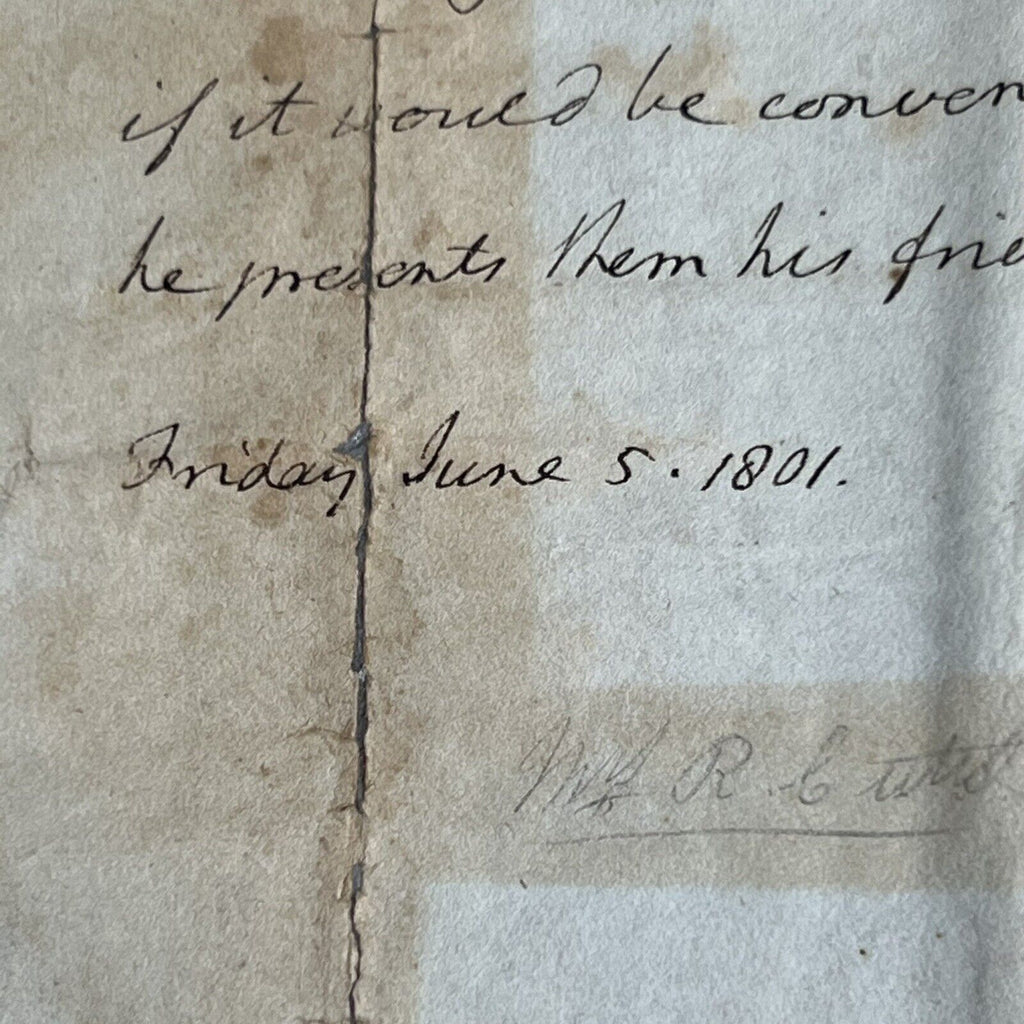 if it would be conven
he presents them his frie
Friday June 5. 1801.
R. Cutts